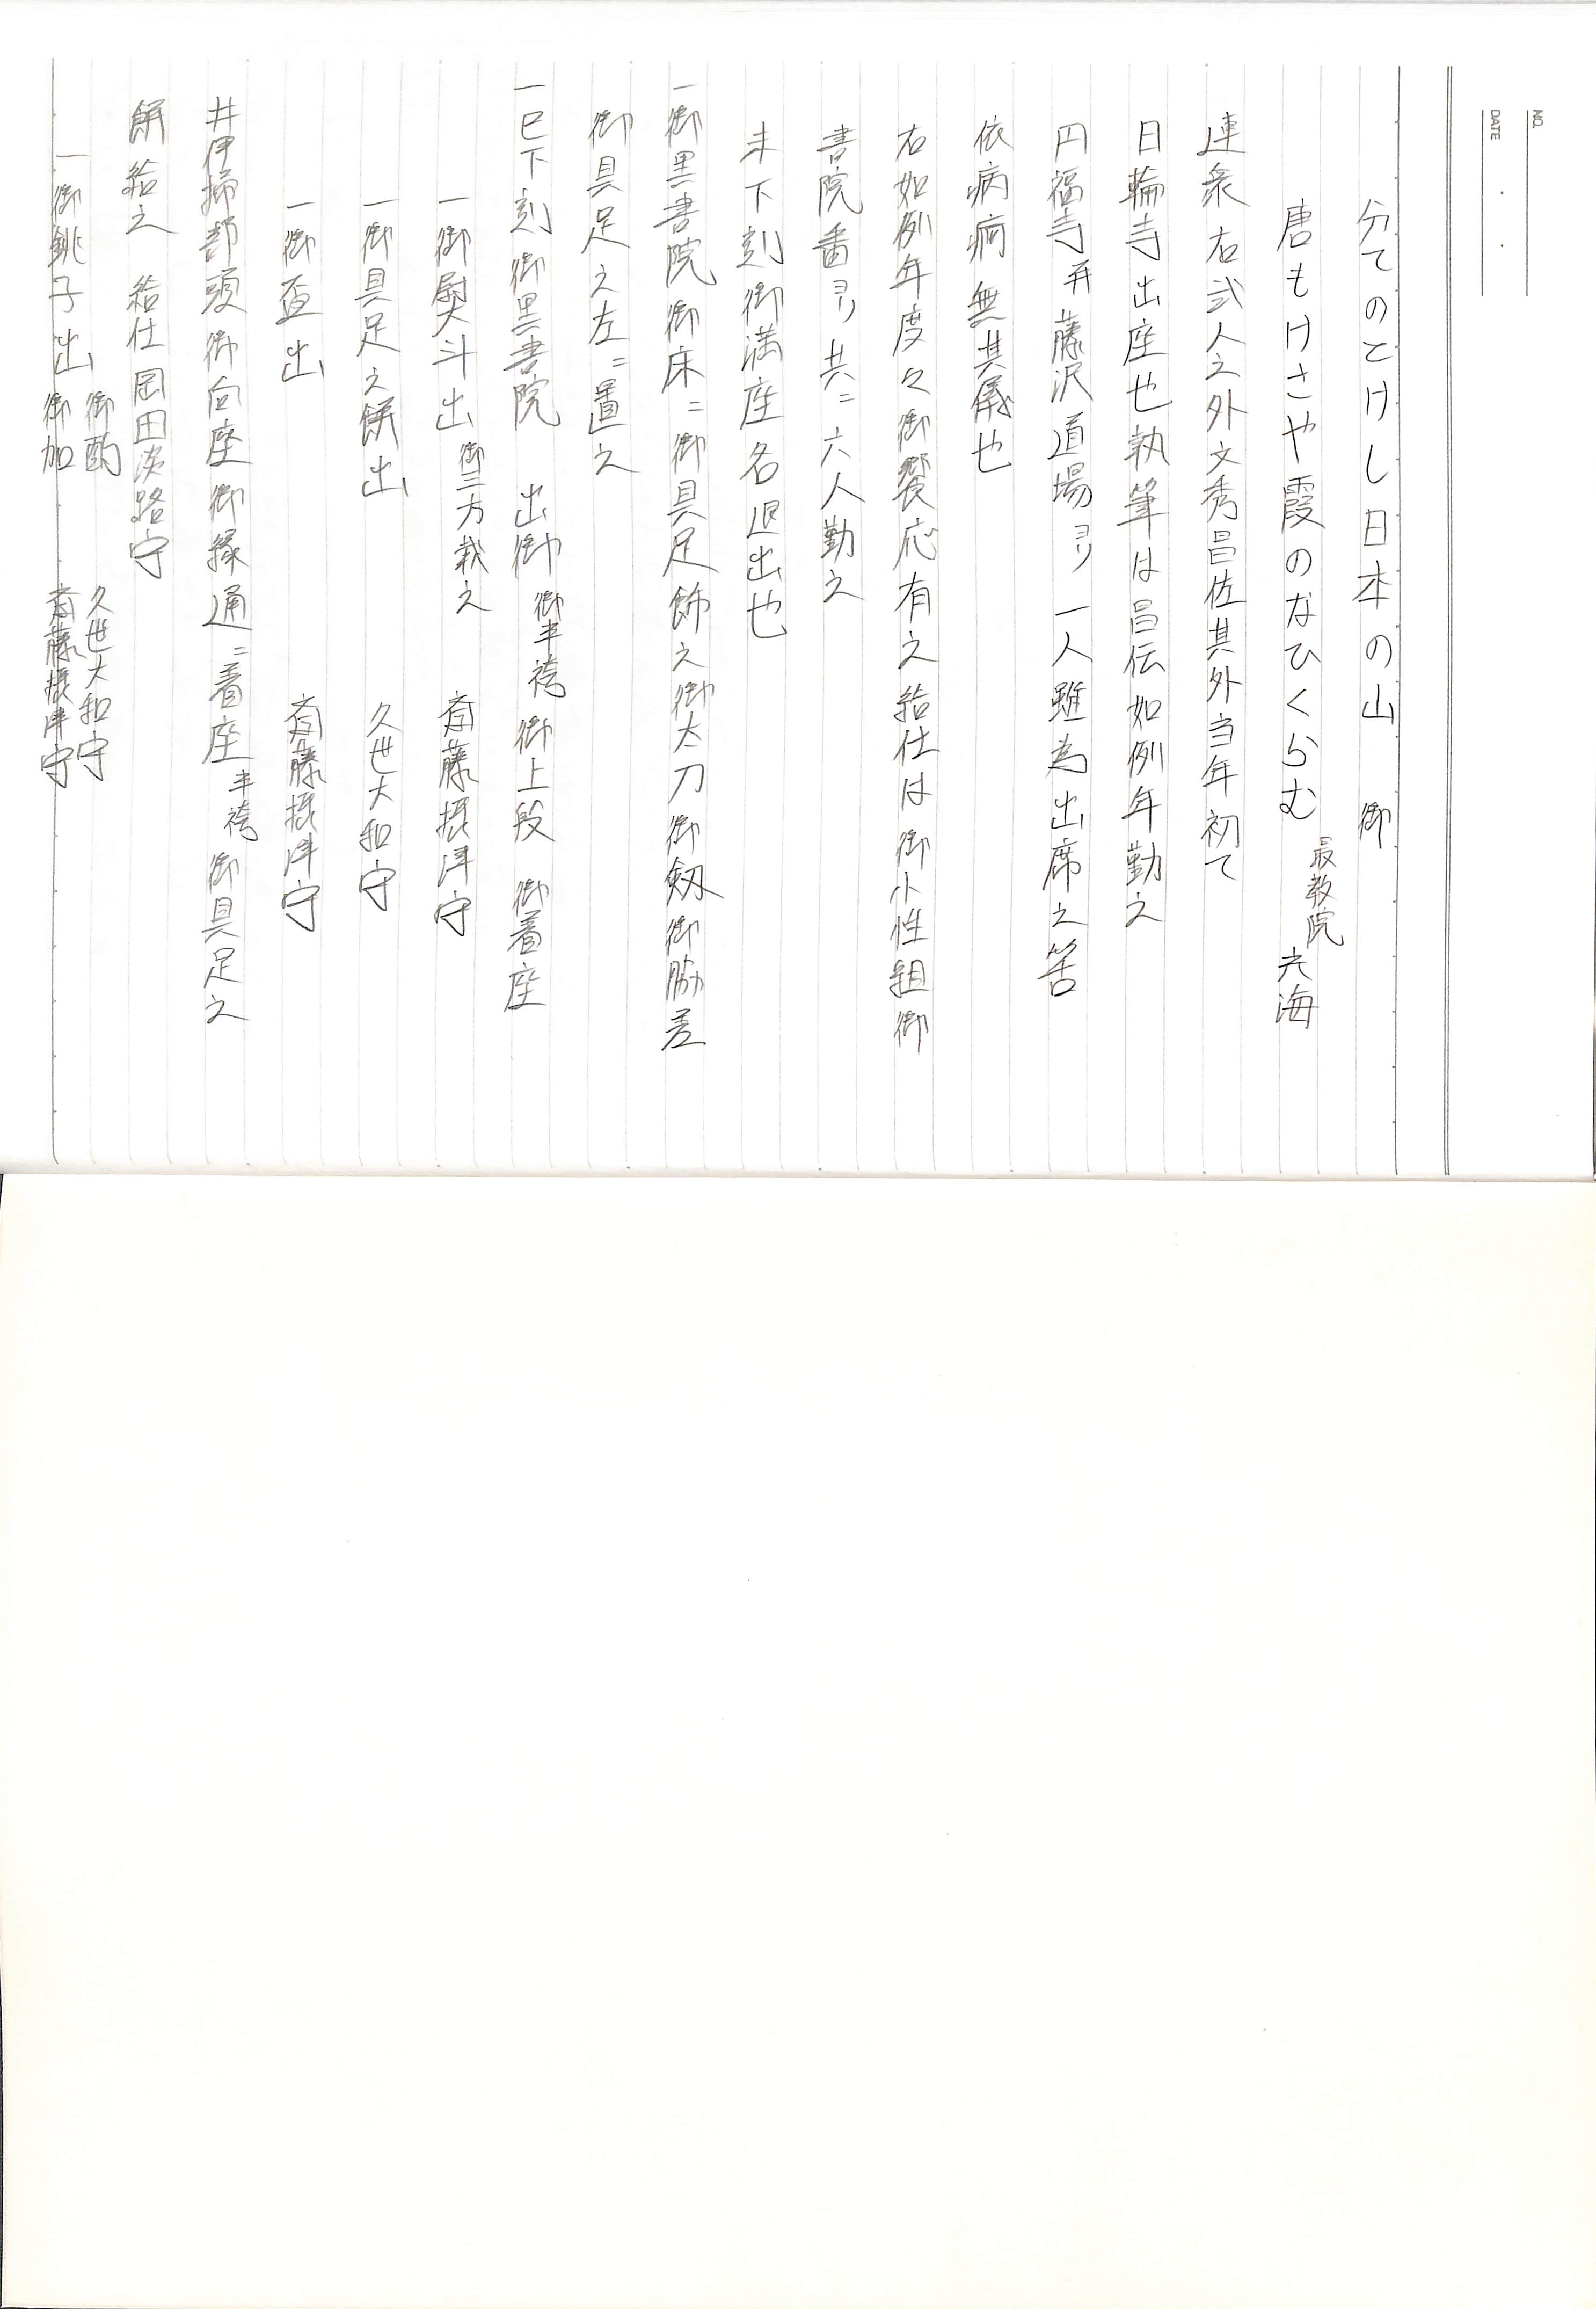 NO.
DATE
分てのとけし日本の山　御
唐もけさや霞のなひくらむ　最教院　六海
連衆右弐人之外文秀昌佐其外当年初て
日輪寺出座也執筆は昌伝如例年勤之
円福寺并藤沢道場ゟ一人雖為出席之筈
依病痾無其儀也
右如例年度々御饗応有之給仕は御小性組御
書院番ゟ共ニ六人勤之
未下刻御満座各退出也
一御黒書院御床ニ御具足飾之御太刀御剱御脇差
御具足之左ニ置之
一巳下刻御黒書院　出御御半袴御上段　御着座
一御熨斗出御三方栽之　斎藤摂津守
一御具足之餅出　久世大和守
一御盃出　斎藤摂津守
井伊掃部頭御向座御縁通ニ着座半袴御具足之
餅給之　給仕岡田淡路守
一御銚子出　御酌　久世大和守
御加　斎藤摂津守